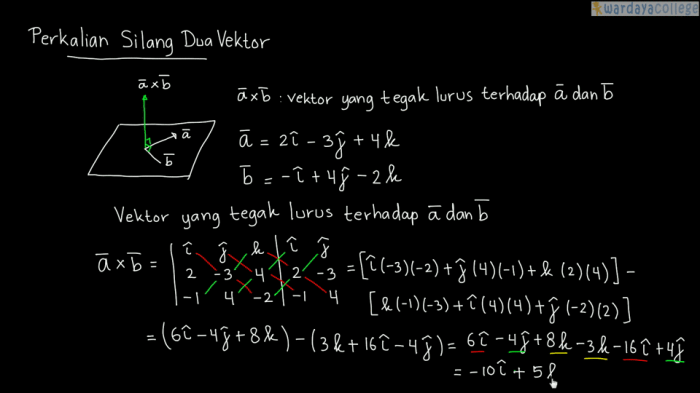 wardayacollege
Perkalian Silang Dua Vektor
a̅ × b̅
a̅
b̅
a̅×b̅ : vektor yang tegak lurus terhadap a̅ dan b̅
a̅ = 2î − 3ĵ + 4k
b̅ = −î + 4ĵ − 2k
Vektor yang tegak lurus terhadap a̅ dan b̅
a̅ × b̅ = | î ĵ k | î ĵ
2 -3 4 2 -3 = [î(-3)(-2) + ĵ(4)(-1) + k(2)(4)] −
-1 4 -2 -1 4 [k(-1)(-3) + î(4)(4) + ĵ(-2)(2)]
= (6î − 4ĵ + 8k) − (3k + 16î − 4ĵ) = 6î − 4ĵ + 8k − 3k − 16î + 4ĵ
= −10î + 5k